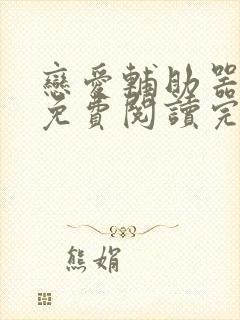 戀愛輔助器
免費閱讀完
熊娟